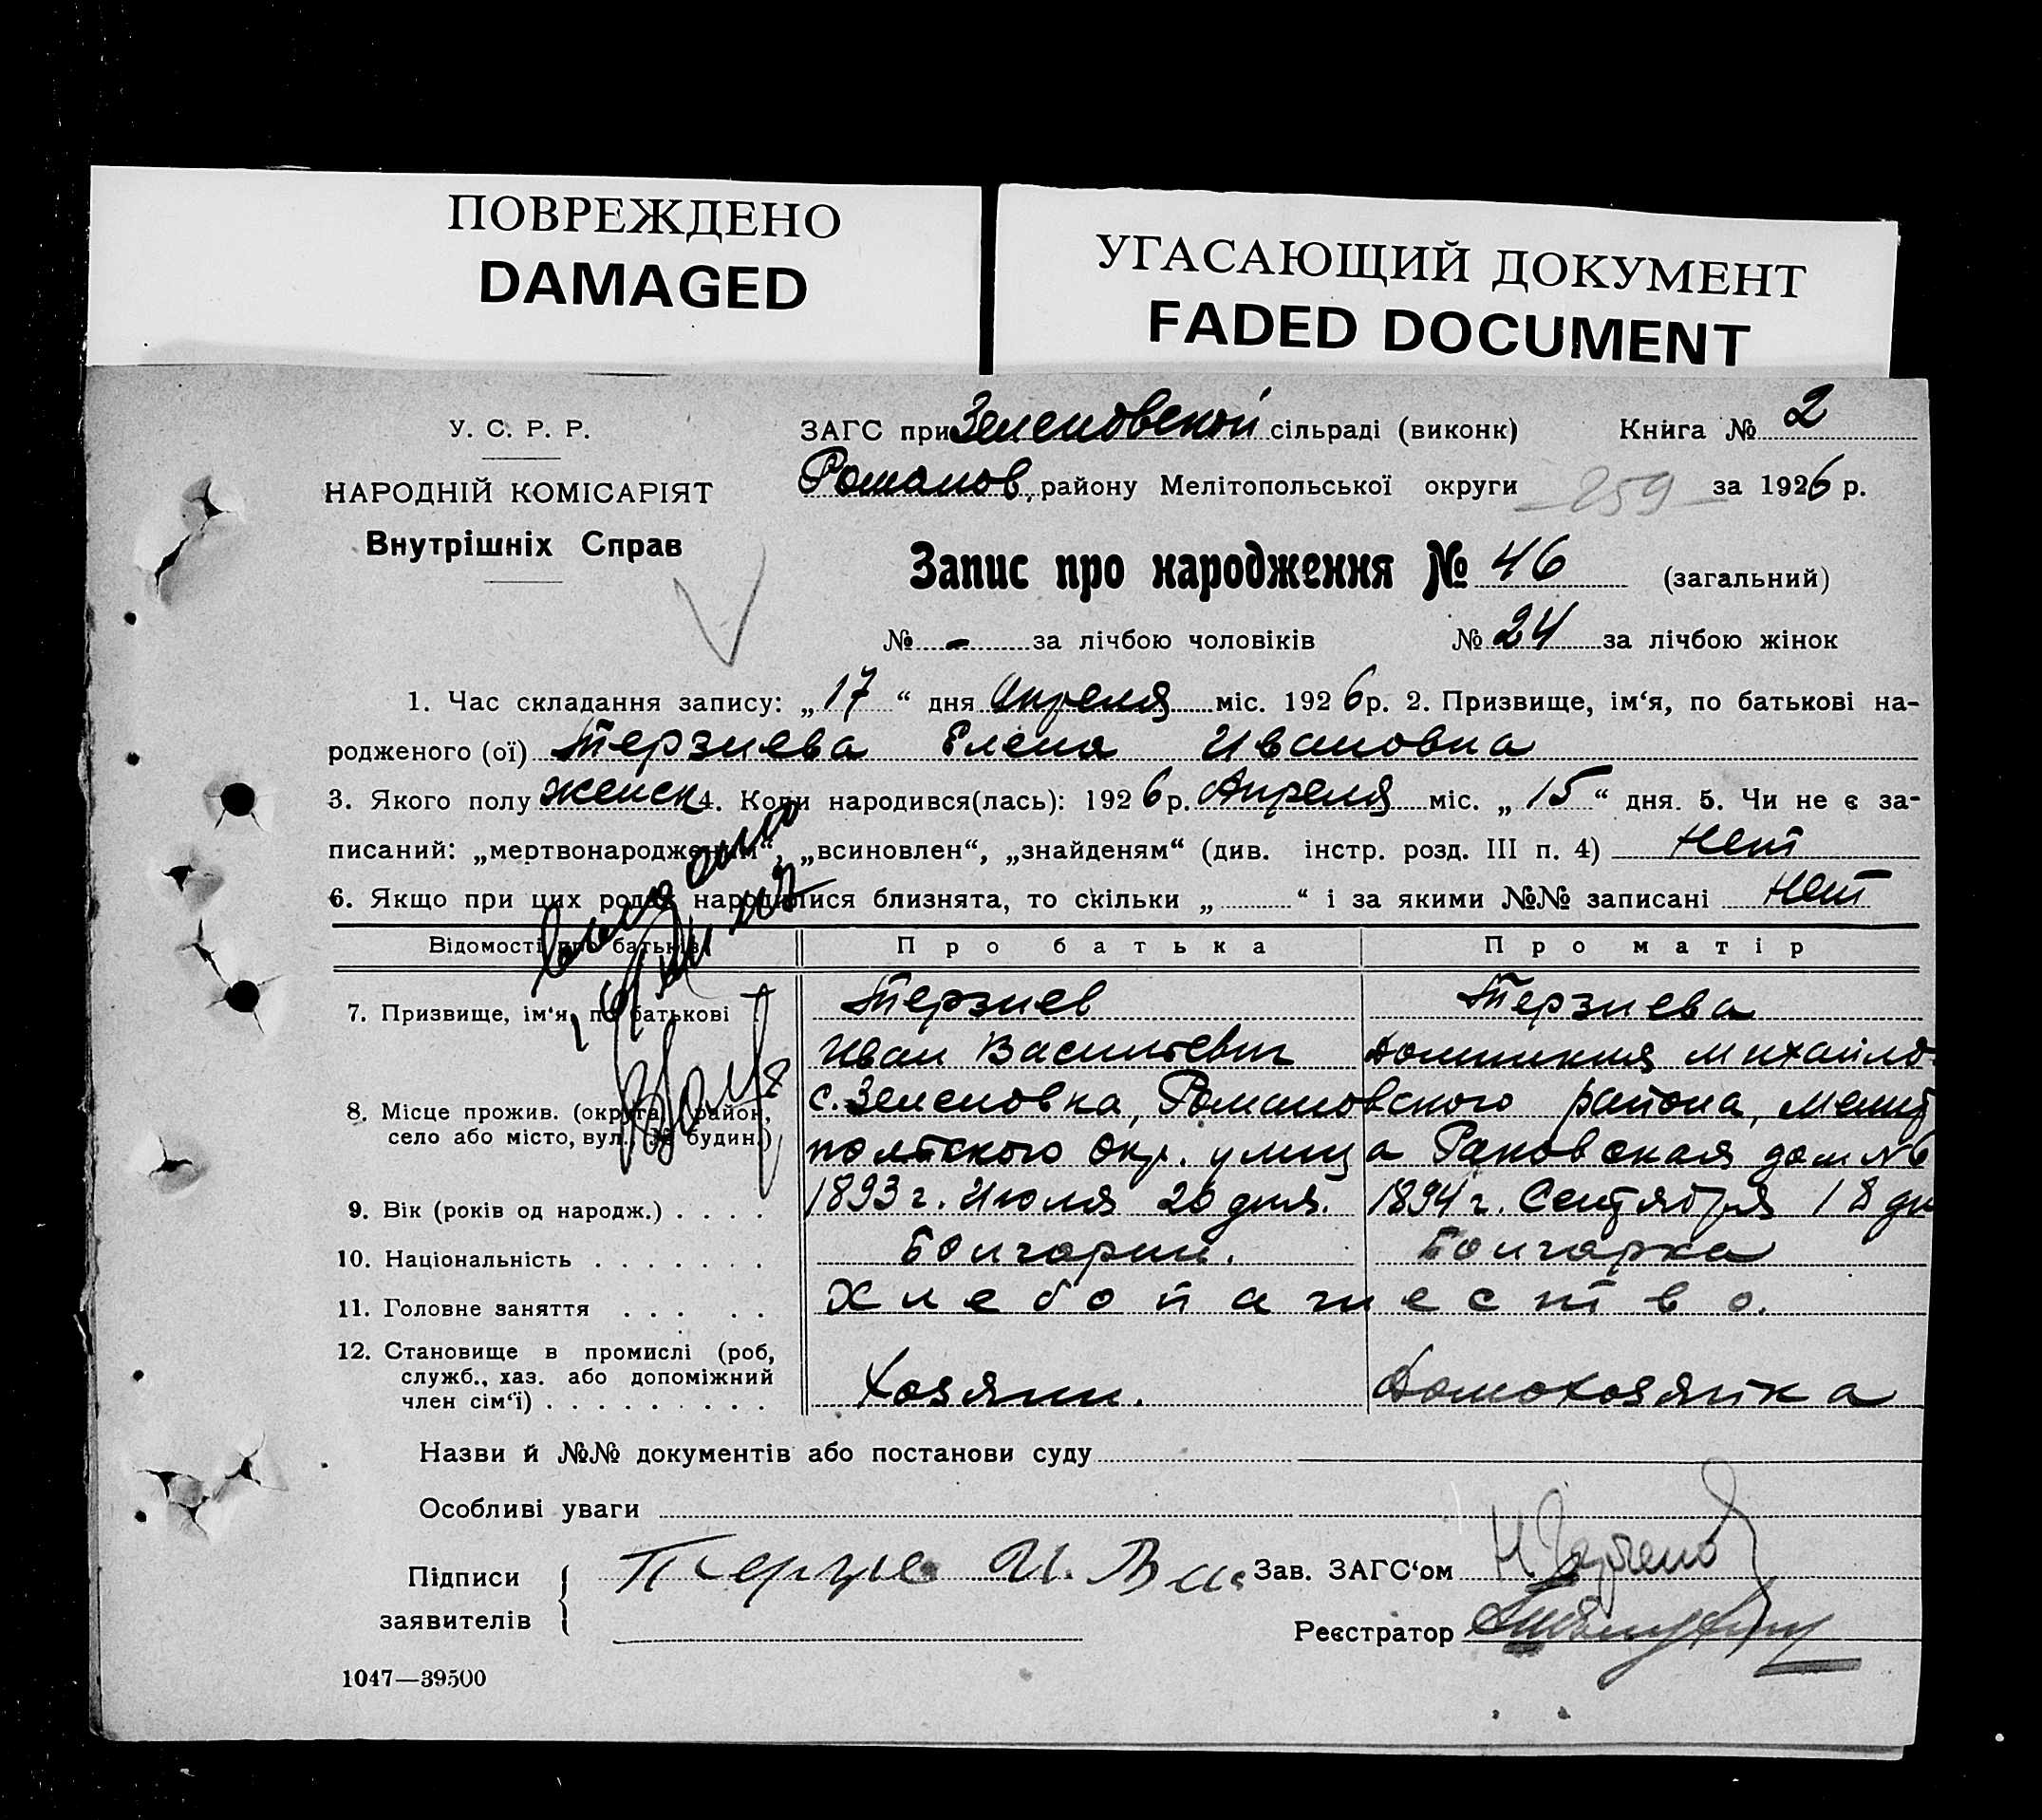 ПОВРЕЖДЕНО
DAMAGED
УГАСАЮЩИЙ ДОКУМЕНТ
FADED DOCUMENT
У. С. Р. Р.
НАРОДНІЙ КОМІСАРІЯТ
Внутрішніх Справ
ЗАГС при Зеленовской сільраді (виконк) Книга № 2
Романов. району Мелітопольської округи 259 за 1926 р.
Запис про народження № 46 (загальний)
№ - за лічбою чоловіків № 24 за лічбою жінок
1. Час складання запису: „17“ дня Апреля міс. 1926 р. 2. Призвище, ім‘я, по батькові на-
родженого (ої) Терзиева Елена Ивановна
3. Якого полу женск 4. Коли народився(лась): 1926 р. Апреля міс. „15“ дня. 5. Чи не є за-
писаний: „мертвонародженим“, „всиновлен“, „знайденям“ (див. інстр. розд. III п. 4) Нет
6. Якщо при цих родах народилися близнята, то скільки „ “ і за якими №№ записані Нет
Відомості про батьків Про батька Про матір
7. Призвище, ім‘я, по батькові Терзиев Терзиева
Иван Васильевич Домникия Михайло-
8. Місце прожив. (округа, район, с. Зеленовка, Романовского района, Мелит
село або місто, вул., № будин.) польского Окр. улица Раковская дом №6
9. Вік (років од народж.) . . . . 1893 г. Июля 20 дня. 1894 г. Сентября 18 дн
10. Національність . . . . . . . Болгарин. Болгарка
11. Головне заняття . . . . . Хлебопашество.
12. Становище в промислі (роб,
служб., хаз. або допоміжний
член сім‘ї) . . . . . . . . . Хозяин. Домохозяйка
Назви й №№ документів або постанови суду
Особливі уваги
Підписи Терзие И. Вас Зав. ЗАГС‘ом
заявителів Реєстратор
1047—39500